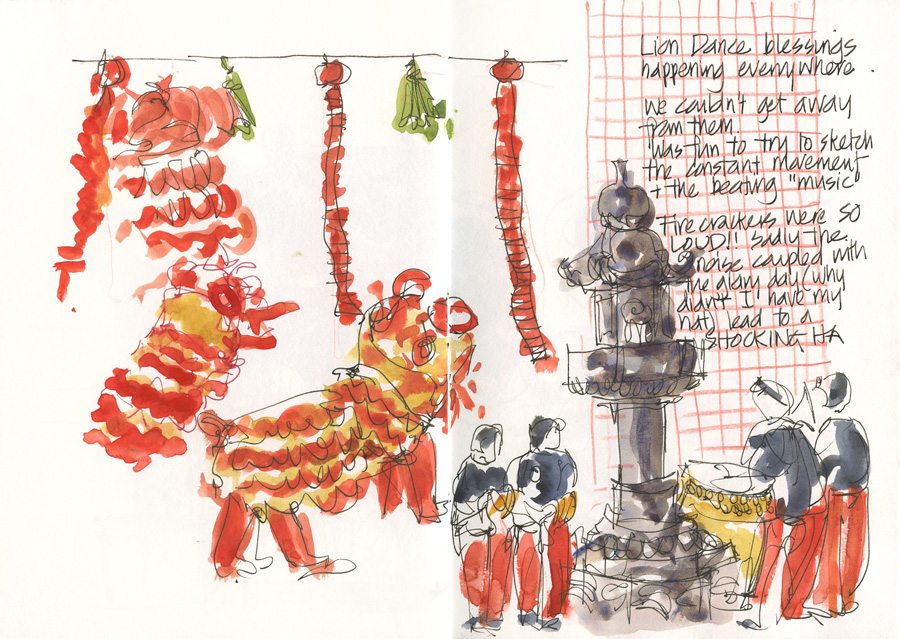 Lion Dance blessings
happening everywhere.
we couldn't get away
from them.
Was fun to try to sketch
the constant movement
+ the beating "music"
Fire crackers were SO
LOUD!! sadly the
noise coupled with
the glary day (why
didn't I have my
hat) lead to a
SHOCKING HA